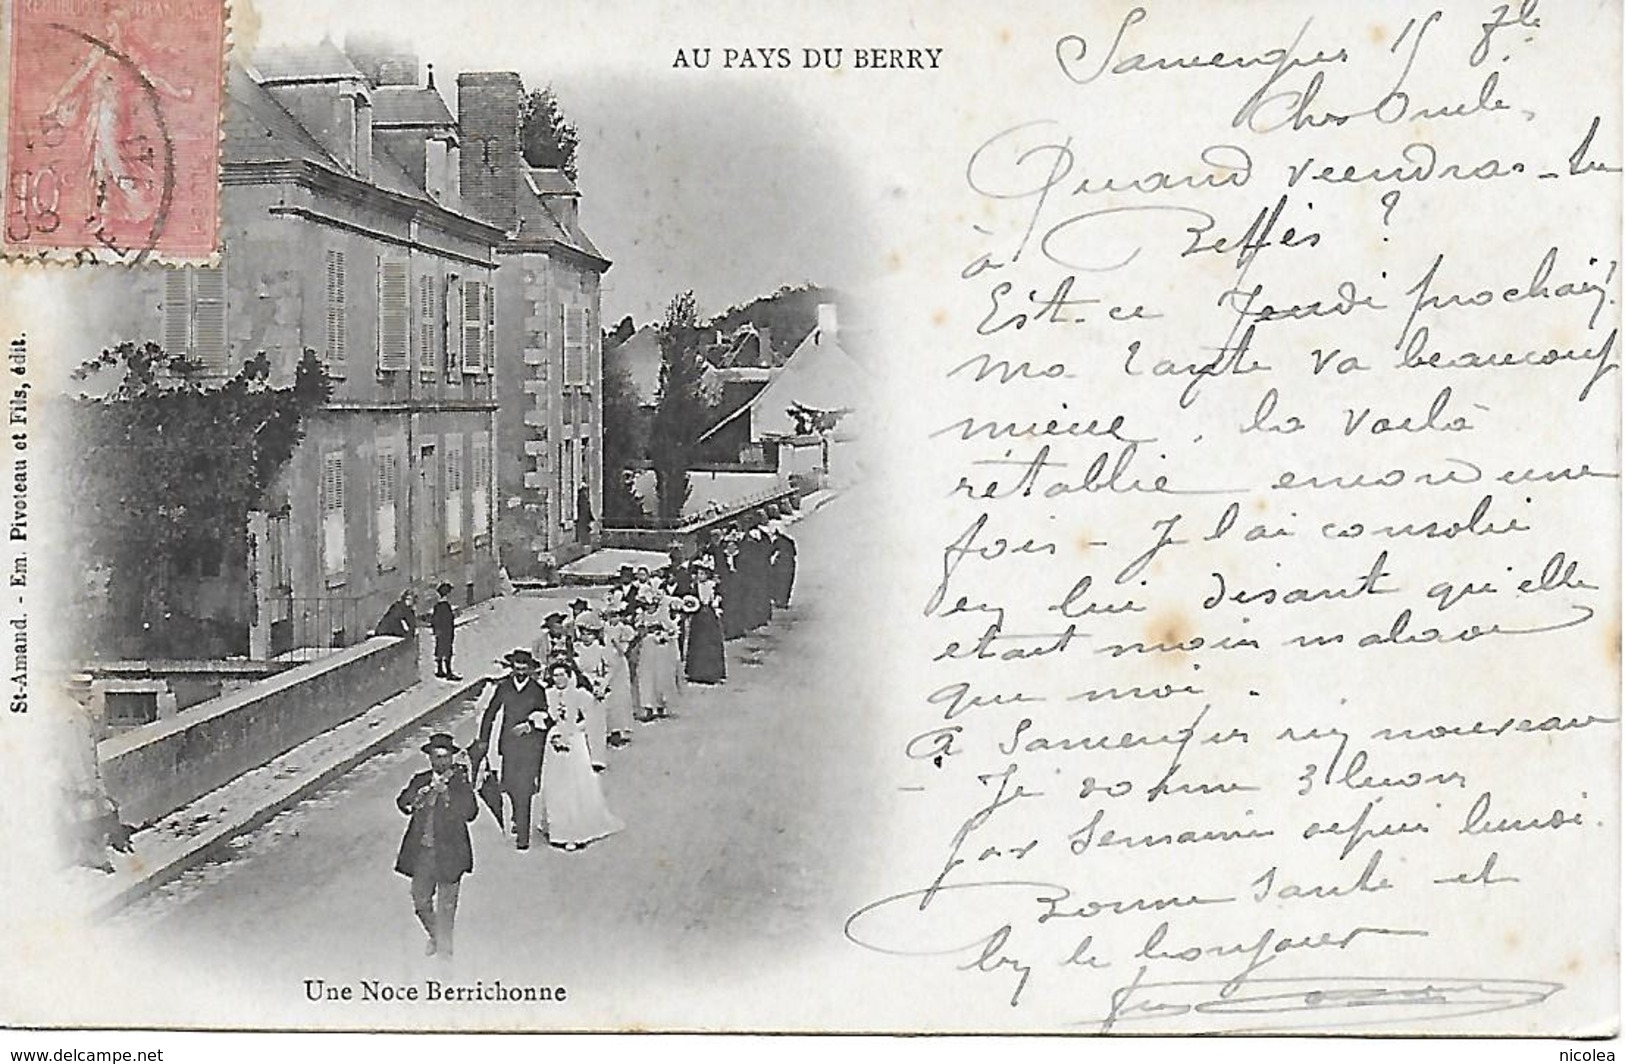 REPUBLIQUE FRANÇAISE
10 c
POSTES
AU PAYS DU BERRY
St-Amand. - Em. Pivoteau et Fils, édit.
Une Noce Berrichonne
Sancergues 15 8bre
Cher Oncle,
Quand viendras-tu
à Beffes ?
Est-ce Jeudi prochain?
ma tante va beaucoup
mieux, la voilà
rétablie encore une
fois - Je l'ai consolée
en lui disant qu'elle
était moins malade
que moi.
à Sancergues rien nouveau
- Je donne 3 leçons
par semaine depuis lundi.
Bonne santé et
bien le bonjour
www.delcampe.net
nicolea